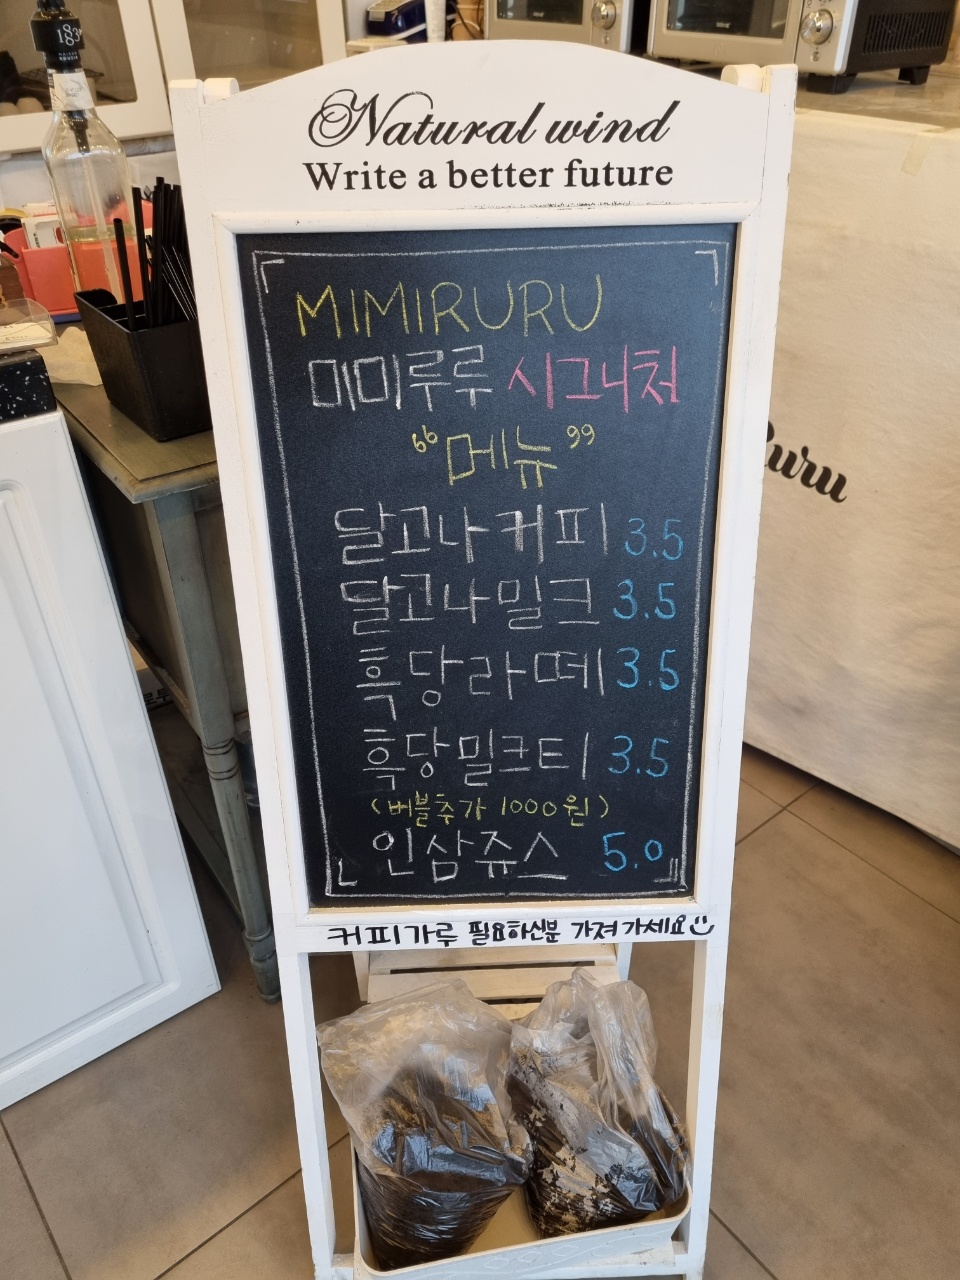 Natural wind
Write a better future
MIMIRURU
미미루루 시그니처
“메뉴”
달고나 커피 3.5
달고나 밀크 3.5
흑당 라떼 3.5
흑당 밀크티 3.5
(버블추가 1000원)
인삼쥬스 5.0
커피가루 필요하신분 가져가세요
183
uru